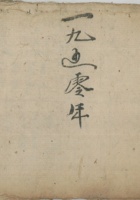 一九五零年